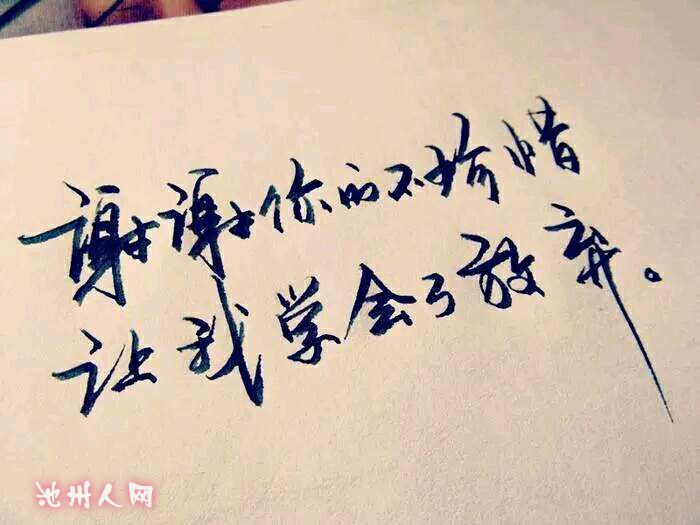 谢谢你的不珍惜
让我学会了放弃。
池州人网